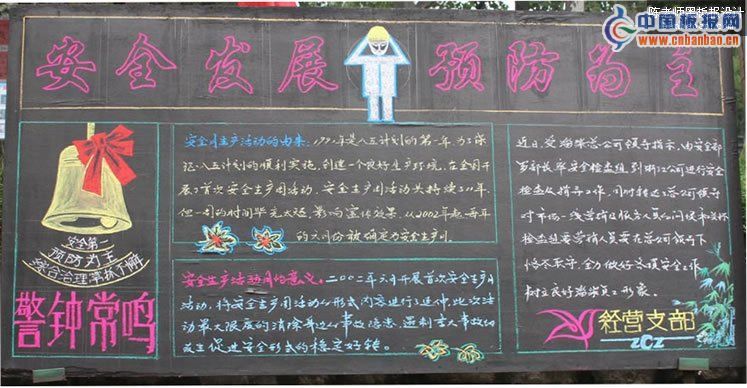 陈老师黑板报设计
中国板报网
www.cnbanbao.cn
安全发展 预防为主
安全第一
预防为主
综合治理
警钟常鸣
安全月生产活动的由来:1991年是八五计划的第一年为了保
证八五计划的顺利实施,创造一个良好生产环境,在全国开
展了首次安全生产周活动,安全生产周活动共持续了11年
但一周的时间毕竟太短,影响宣传效果,从2002年起每年
的六月份被确定为安全生产月.
安全生产活动月的意义:二00二年六月开展首次安全生产月
活动,将安全生产周活动的形式内容进行了延伸,此次活
动最大限度的消除
促进安全形式的稳定好转。
近日,受 总公司领导指示,由安全部
部长率安全检查组,到浙江公司进行安全
检查及指导工作,同时转达总公司领导
对市场一线营销及服务人员
检查组要营销人员要在总公司领导下
全力做好各项安全工作
树立良好 员工形象。
经营支部
ZCZ